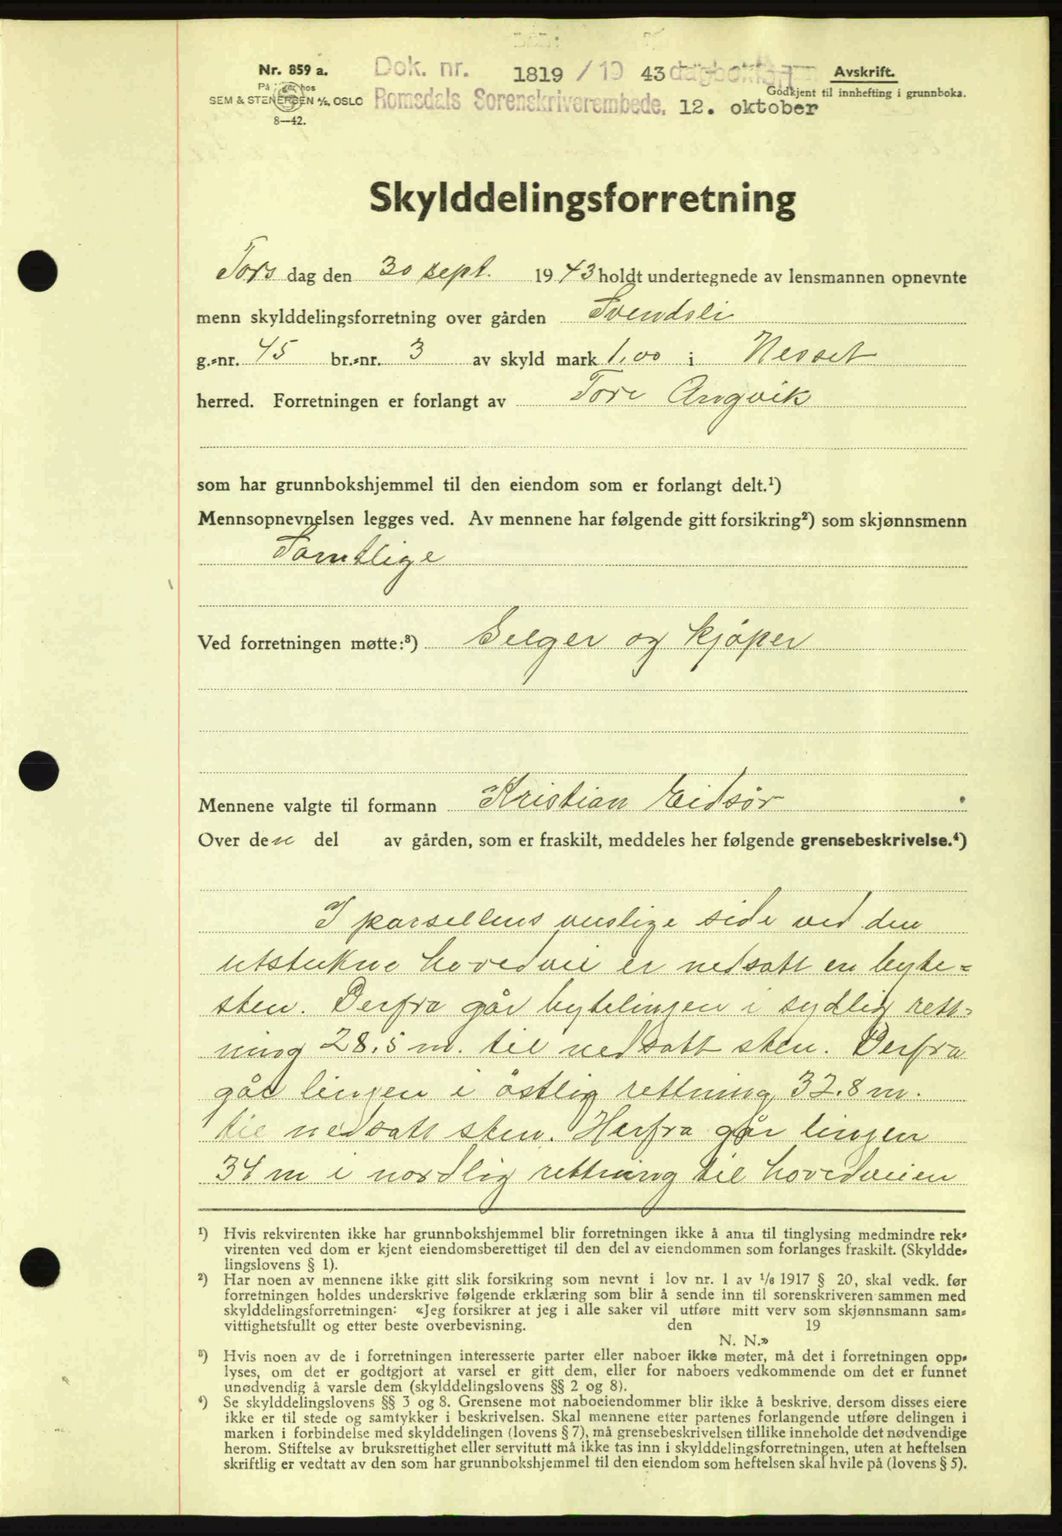 Nr. 859 a.
SEM & STENERSEN A/S, OSLO
8—42.
Dok. nr. 1819 / 19 43 dagboken
Romsdals Sorenskriverembede, 12. oktober
Avskrift.
Godkjent til innhefting i grunnboka.
Skylddelingsforretning
Tors dag den 30 sept. 19 43 holdt undertegnede av lensmannen opnevnte
menn skylddelingsforretning over gården Svendsli
g.-nr. 45 br.-nr. 3 av skyld mark 1,00 i Nesset
herred. Forretningen er forlangt av Tore Angvik
som har grunnbokshjemmel til den eiendom som er forlangt delt.¹)
Mennsopnevnelsen legges ved. Av mennene har følgende gitt forsikring²) som skjønnsmenn
Samtlige
Ved forretningen møtte:³) Selger og kjøper
Mennene valgte til formann Kristian Eidsör
Over den del av gården, som er fraskilt, meddeles her følgende grensebeskrivelse.⁴)
I parsellens veslige side ved den
utstukne hovedvei er nedsatt en byte-
sten. Derfra går bytelinjen i sydlig rett-
ning 28,5 m. til nedsatt sten. Derfra
går linjen i östlig rettning 32,8 m.
til nedsatt sten. Herfra går linjen
34 m i nordlig rettning til hovedveien
¹) Hvis rekvirenten ikke har grunnbokshjemmel blir forretningen ikke å anta til tinglysing medmindre rek-
virenten ved dom er kjent eiendomsberettiget til den del av eiendommen som forlanges fraskilt. (Skyldde-
lingslovens § 1).
²) Har noen av mennene ikke gitt slik forsikring som nevnt i lov nr. 1 av 1/6 1917 § 20, skal vedk. før
forretningen holdes underskrive følgende erklæring som blir å sende inn til sorenskriveren sammen med
skylddelingsforretningen: «Jeg forsikrer at jeg i alle saker vil utføre mitt verv som skjønnsmann sam-
vittighetsfullt og etter beste overbevisning. den 19
N. N.»
³) Hvis noen av de i forretningen interesserte parter eller naboer ikke møter, må det i forretningen opp-
lyses, om det er godtgjort at varsel er gitt dem, eller for naboers vedkommende om det er funnet
unødvendig å varsle dem (skylddelingslovens §§ 2 og 8).
⁴) Se skylddelingslovens §§ 3 og 8. Grensene mot naboeiendommer blir ikke å beskrive, dersom disses eiere
ikke er til stede og samtykker i beskrivelsen. Skal mennene etter partenes forlangende utføre delingen i
marken i forbindelse med skylddelingen (lovens § 7), må grensebeskrivelsen tillike inneholde det nødvendige
herom. Stiftelse av bruksrettighet eller servitutt må ikke tas inn i skylddelingsforretningen, uten at heftelsen
skriftlig er vedtatt av den som har grunnbokshjemmel til den eiendom som heftelsen skal hvile på (lovens § 5).